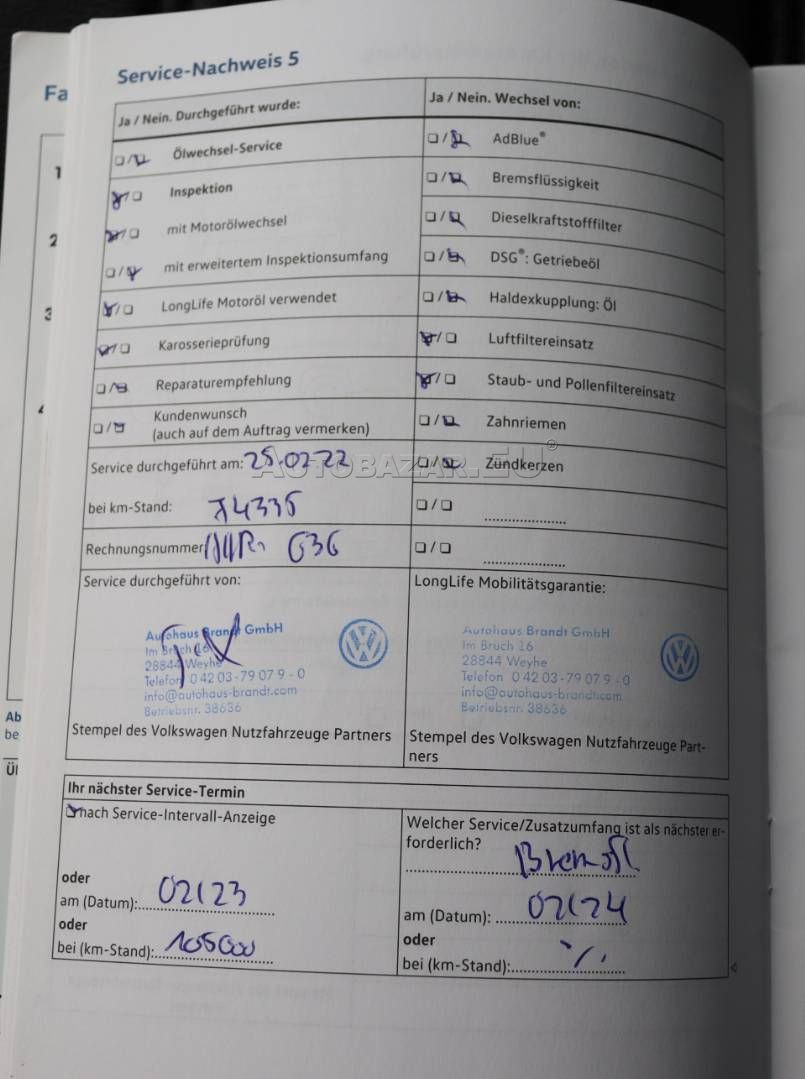 Service-Nachweis 5
Ja / Nein. Durchgeführt wurde:
Ölwechsel-Service
Inspektion
mit Motorölwechsel
mit erweitertem Inspektionsumfang
LongLife Motoröl verwendet
Karosserieprüfung
Reparaturempfehlung
Kundenwunsch
(auch auf dem Auftrag vermerken)
Service durchgeführt am: 25.02.22
bei km-Stand: 74335
Rechnungsnummer 636
Service durchgeführt von:
Autohaus Brandt GmbH
Im Bruch 16
28844 Weyhe
Telefon 0 42 03 - 79 07 9 - 0
info@autohaus-brandt.com
Betriebsnr. 38636
Stempel des Volkswagen Nutzfahrzeuge Partners
Ja / Nein. Wechsel von:
AdBlue®
Bremsflüssigkeit
Dieselkraftstofffilter
DSG®: Getriebeöl
Haldexkupplung: Öl
Luftfiltereinsatz
Staub- und Pollenfiltereinsatz
Zahnriemen
Zündkerzen
LongLife Mobilitätsgarantie:
Autohaus Brandt GmbH
Im Bruch 16
28844 Weyhe
Telefon 0 42 03 - 79 07 9 - 0
info@autohaus-brandt.com
Betriebsnr. 38636
Stempel des Volkswagen Nutzfahrzeuge Part-
ners
Ihr nächster Service-Termin
nach Service-Intervall-Anzeige
oder
am (Datum): 02/23
oder
bei (km-Stand): 105000
Welcher Service/Zusatzumfang ist als nächster er-
forderlich?
Bremsfl.
am (Datum): 02/24
oder
bei (km-Stand): %
Fa
1
2
3
4
Ab
be
Ül
AUTOBAZAR.EU®